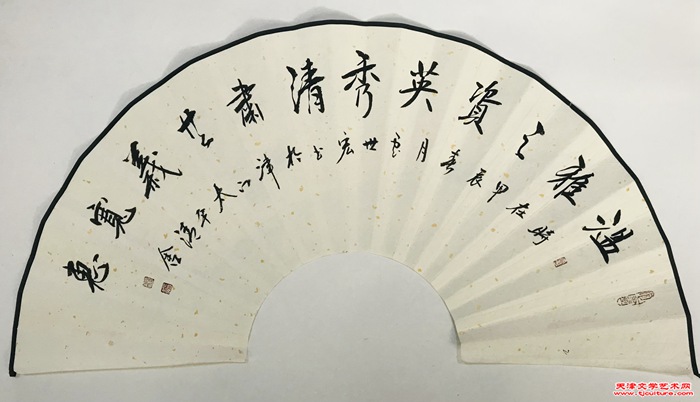 温雅之資英秀清肅義寬惠
時在甲辰春月世宏书於津门太平清舍
天津文学艺术网
www.tjculture.com